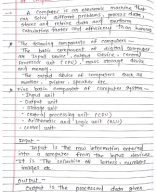 A computer is an electronic machine that
can solve different problems, process data,
store and retrive data and perform
calculations faster and efficiently than humans
The following components of computers :-
The basic components of digital computer
are Input device, output device, Central
device and memory.
The output device of computers such as
monitor, printer, speaker etc.
Five basic component of computer system -
- Input unit
- Output unit
- storage unit
- central processing unit (CPU)
- Arithmetic and logic unit (ALU)
- control unit
Input -
Input is the raw information entered
into a computer from the input devices.
It is the collection of letters, numbers
images etc.
Output -
Output is the processed data given